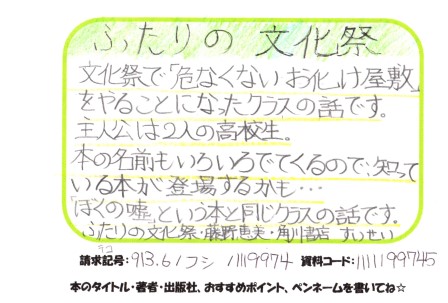 ふたりの文化祭
文化祭で「危なくないお化け屋敷」
をやることになったクラスの話です。
主人公は2人の高校生。
本の名前もいろいろでてくるので、知って
いる本が登場するかも…
「ぼくの嘘」という本と同じクラスの話です。
ふたりの文化祭・藤野恵美・角川書店 すいせい
請求記号: 913.6/フシ/1119974 資料コード: 111199745
本のタイトル・著者・出版社、おすすめポイント、ペンネームを書いてね☆